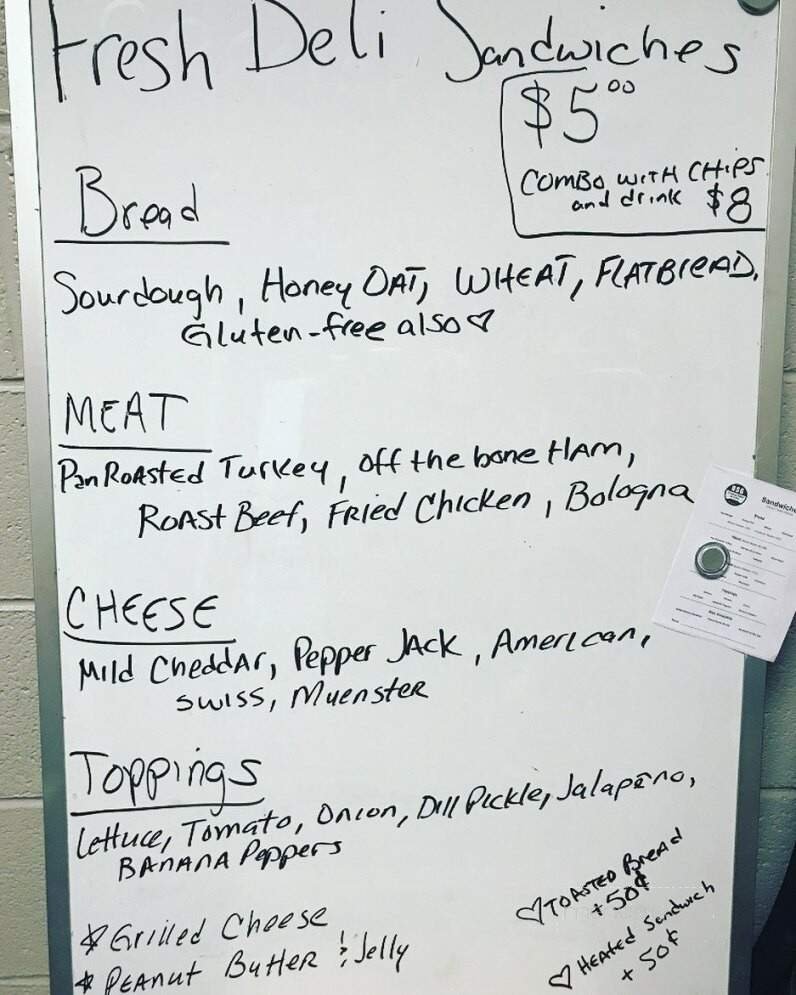 Fresh Deli Sandwiches
$5.00
COMBO WITH CHIPS
and drink $8
Bread
Sourdough, Honey OAT, WHEAT, FLATBREAD,
Gluten-free also ♡
MEAT
Pan Roasted Turkey, off the bone HAM,
Roast Beef, Fried Chicken, Bologna
CHEESE
Mild Cheddar, Pepper Jack, American,
Swiss, Muenster
Toppings
Lettuce, Tomato, Onion, Dill Pickle, Jalapeño,
BANANA Peppers
* Grilled Cheese
* Peanut Butter & Jelly
♡ TOASTED Bread
+ 50¢
♡ HEATED Sandwich
+ 50¢